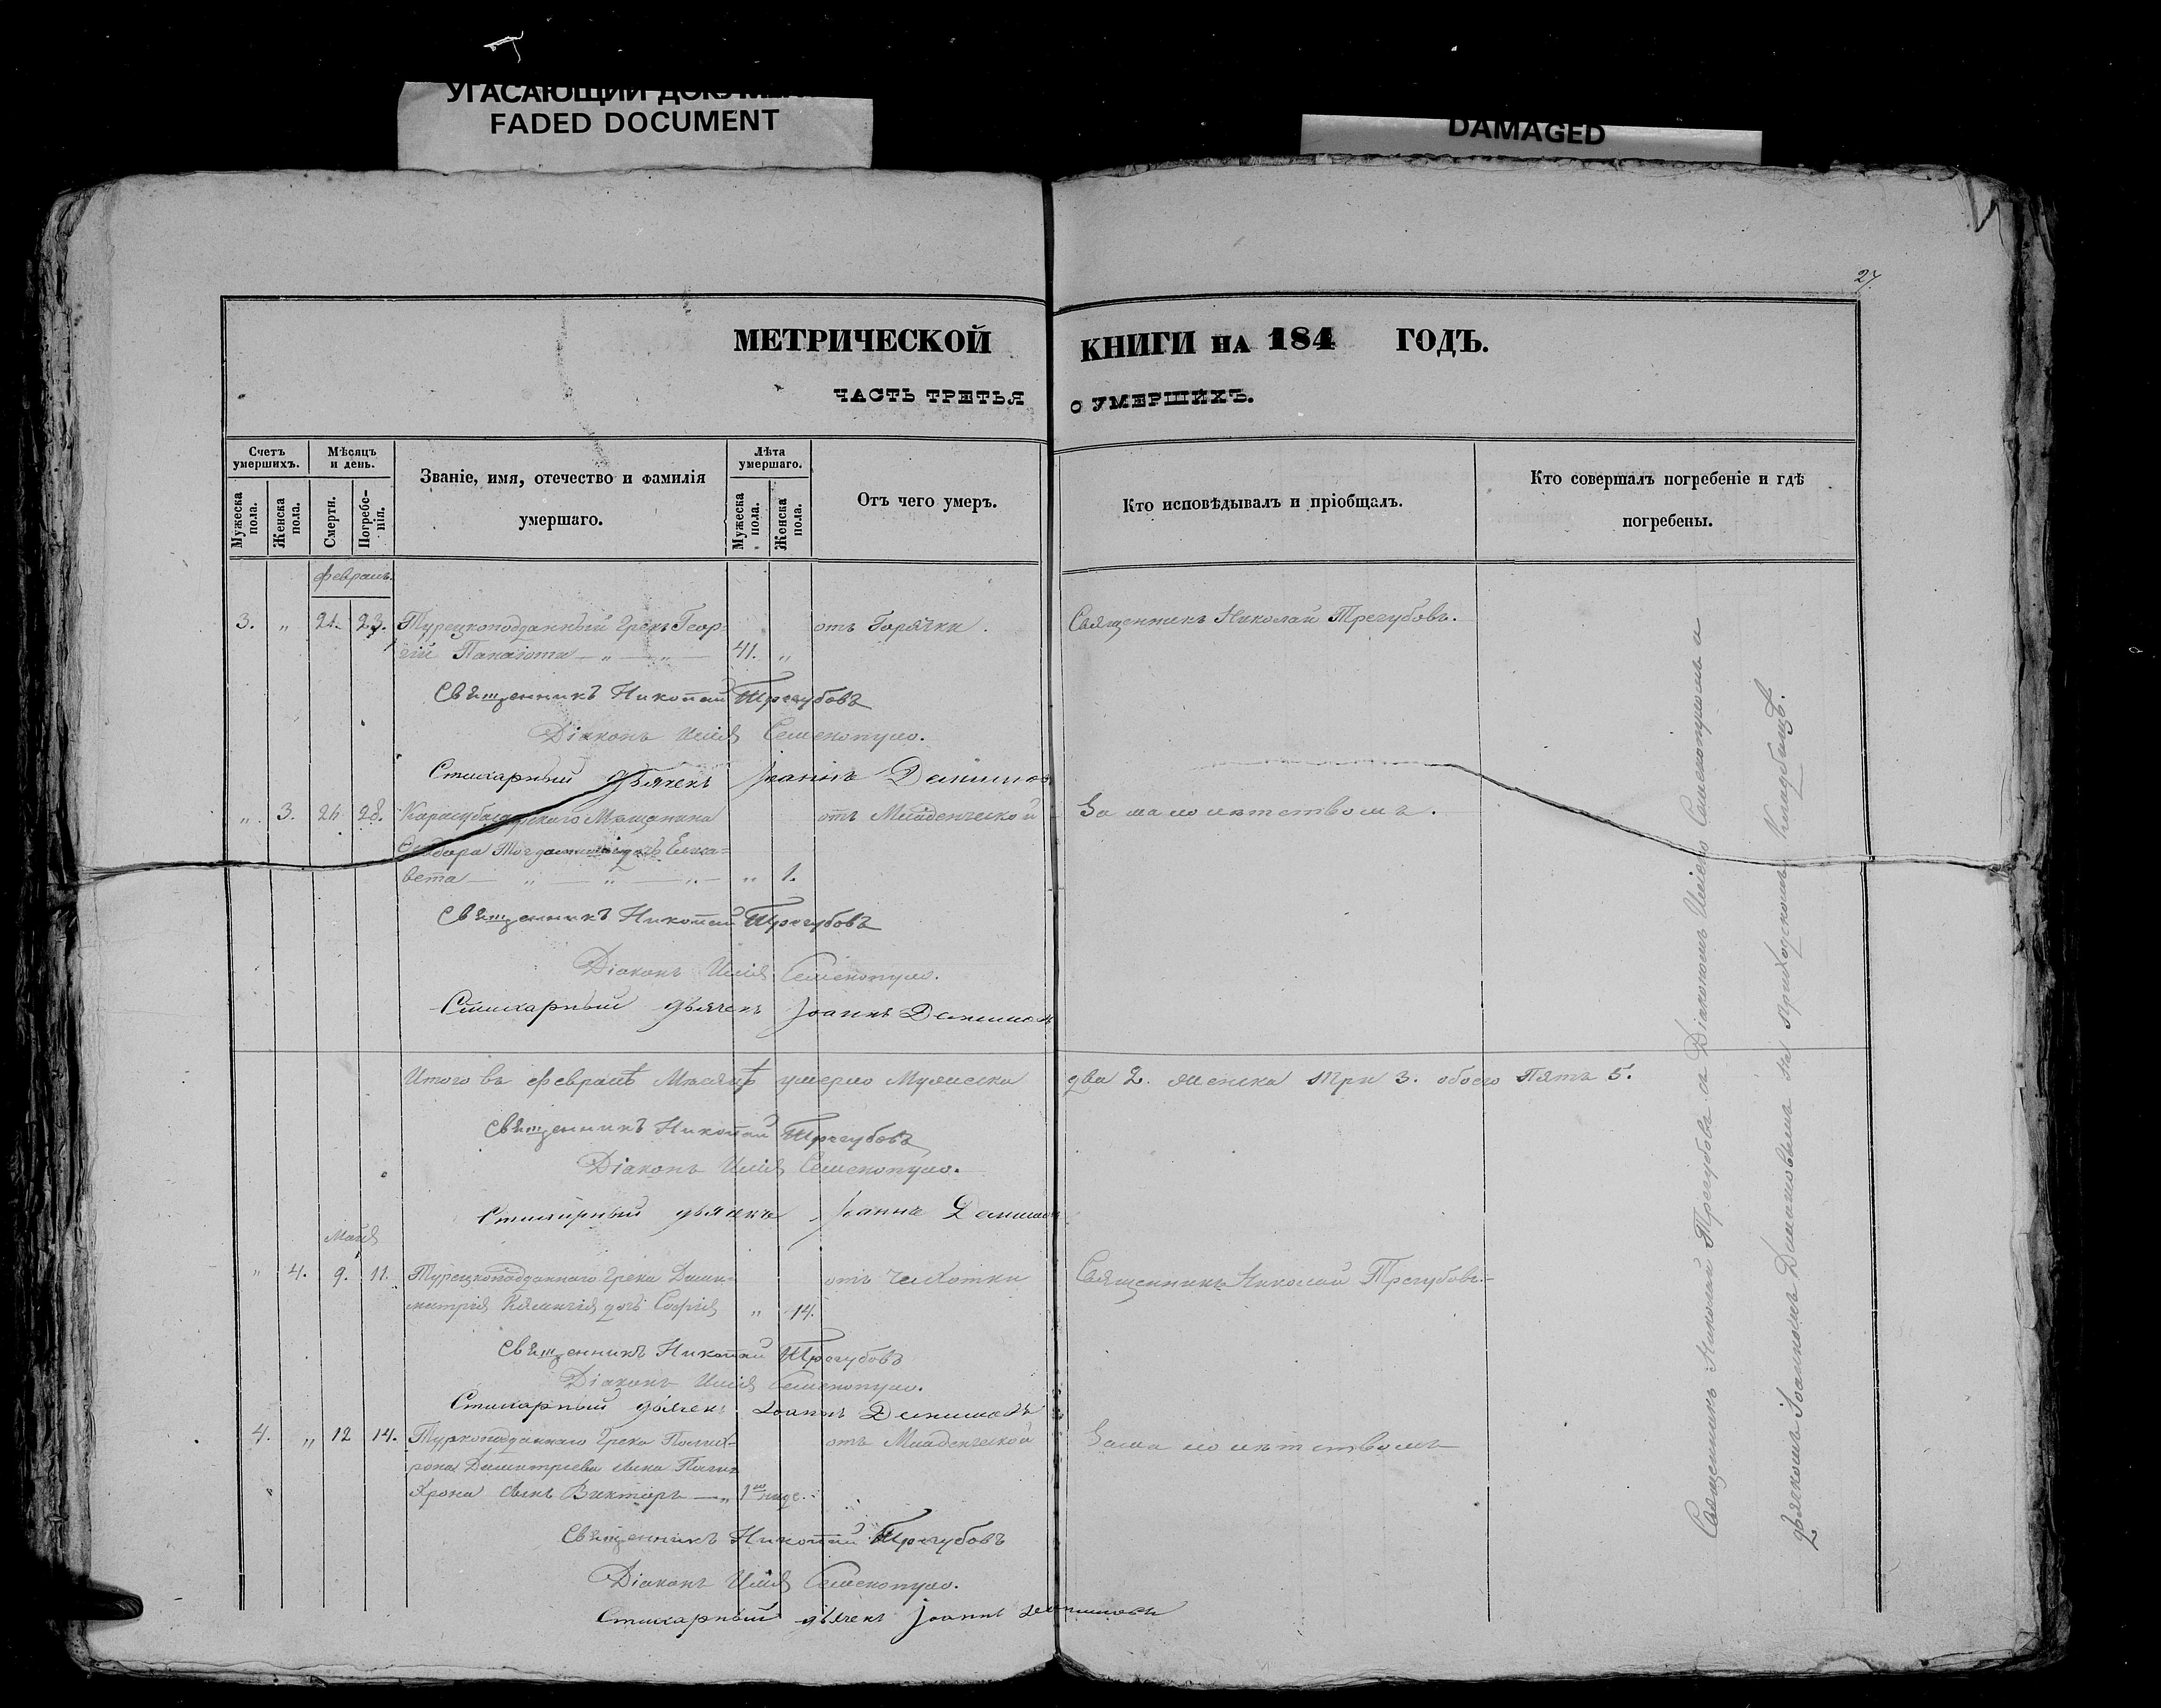 УГАСАЮЩИЙ ДОКУМЕНТ
FADED DOCUMENT
DAMAGED
27.
МЕТРИЧЕСКОЙ КНИГИ НА 184 ГОДЪ.
ЧАСТЬ ТРЕТЬЯ О УМЕРШИХЪ.
Счетъ умершихъ.
Мужеска пола.
Женска пола.
Мѣсяцъ и день.
Смерти.
Погребенія.
Званіе, имя, отечество и фамилія
умершаго.
Лѣта умершаго.
Мужеска пола.
Женска пола.
Отъ чего умеръ.
Кто исповѣдывалъ и пріобщалъ.
Кто совершалъ погребеніе и гдѣ
погребены.
февраль.
3. „ 21. 23. Турецкоподданный Грекъ Геор= отъ Горячки. Священникъ Николай Трегубовъ.
гій Панаіоти — „ — „ — 41. „
Священникъ Николай Трегубовъ
Діаконъ Илія Семенопуло.
Стихарный дьячекъ Іоаннъ
„ 3. 26 28. Карасубазарскаго Мѣщанина отъ Младенческой За малолѣтствомъ.
дочь Елиса=
вета — „ — „ — „ — „ 1.
Священникъ Николай Трегубовъ
Діаконъ Илія Семенопуло.
Стихарный дьячекъ Іоаннъ
Итого въ февралѣ Мѣсяцѣ умерло Мужеска два 2. женска три 3. обоего пять 5.
Священникъ Николай Трегубовъ
Діаконъ Илія Семенопуло.
Стихарный дьячекъ Іоаннъ
Майя
„ 4. 9. 11. Турецкоподданнаго Грека Дими= отъ Чахотки Священникъ Николай Трегубовъ.
митрія дочь Софія „ 14.
Священникъ Николай Трегубовъ
Діаконъ Илія Семенопуло.
Стихарный дьячекъ Іоаннъ
4. „ 12 14. Туркоподданнаго Грека отъ Младенческой За малолѣтствомъ
рона Димитріева
хрона сынъ Викторъ — „
Священникъ Николай Трегубовъ
Діаконъ Илія Семенопуло.
Стихарный дьячекъ Іоаннъ
Священникъ Николай Трегубовъ съ Діакономъ Иліею Семенопуломъ и
дьячкомъ Іоанномъ на приходскомъ Кладбищѣ.